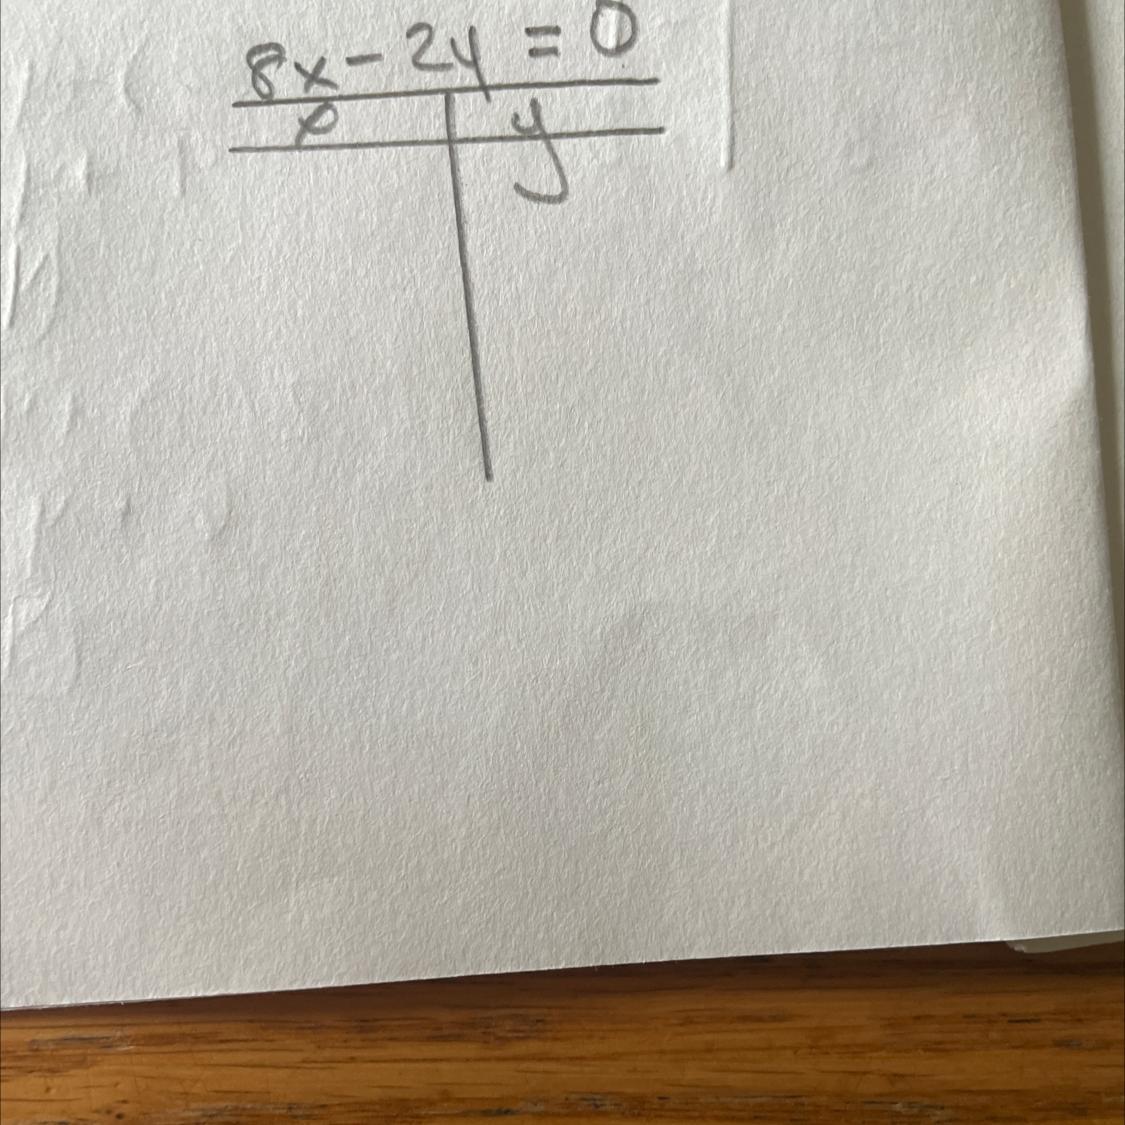 8x - 2y = 0
x y